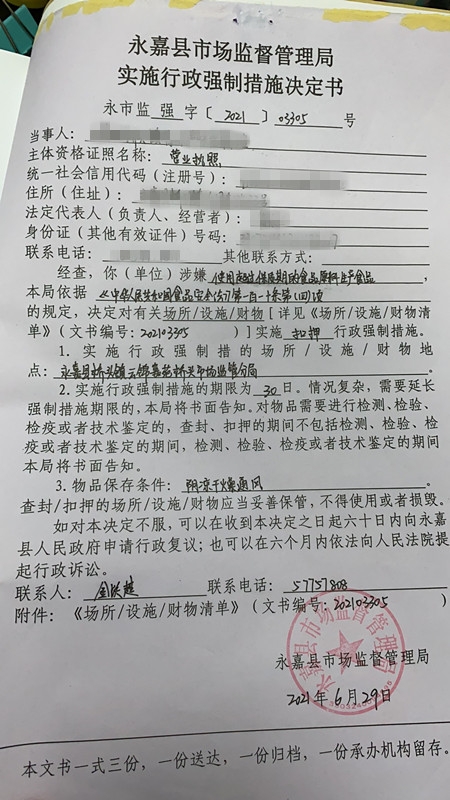 永嘉县市场监督管理局
实施行政强制措施决定书
永市监 强 字〔 2021 〕 03305 号
当事人：
主体资格证照名称： 营业执照
统一社会信用代码（注册号）：
住所（住址）：
法定代表人（负责人、经营者）：
身份证（其他有效证件）号码：
联系电话： 其他联系方式：
经查，你（单位）涉嫌 使用超过保质期的食品原料生产食品 ，
本局依据 《中华人民共和国食品安全法》第一百一十条第（四）项
的规定，决定对有关场所/设施/财物［详见《场所/设施/财物清
单》（文书编号：202103305 ）］实施 扣押 行政强制措施。
1.实施行政强制措的场所/设施/财物地
点：永嘉县桥头镇 桥头市场监管分局
2.实施行政强制措施的期限为 30 日。情况复杂，需要延长
强制措施期限的，本局将书面告知。对物品需要进行检测、检验、
检疫或者技术鉴定的，查封、扣押的期间不包括检测、检验、检
疫或者技术鉴定的期间，检测、检验、检疫或者技术鉴定的期间
本局将书面告知。
3.物品保存条件： 阴凉干燥通风 。
查封/扣押的场所/设施/财物应当妥善保管，不得使用或者损毁。
如对本决定不服，可以在收到本决定之日起六十日内向永嘉
县人民政府申请行政复议；也可以在六个月内依法向人民法院提
起行政诉讼。
联系人： 联系电话： 57757808
附件：《场所/设施/财物清单》（文书编号：202103305 ）
永嘉县市场监督管理局
永嘉县市场监督管理局
2021年6月29日
本文书一式三份，一份送达，一份归档，一份承办机构留存。